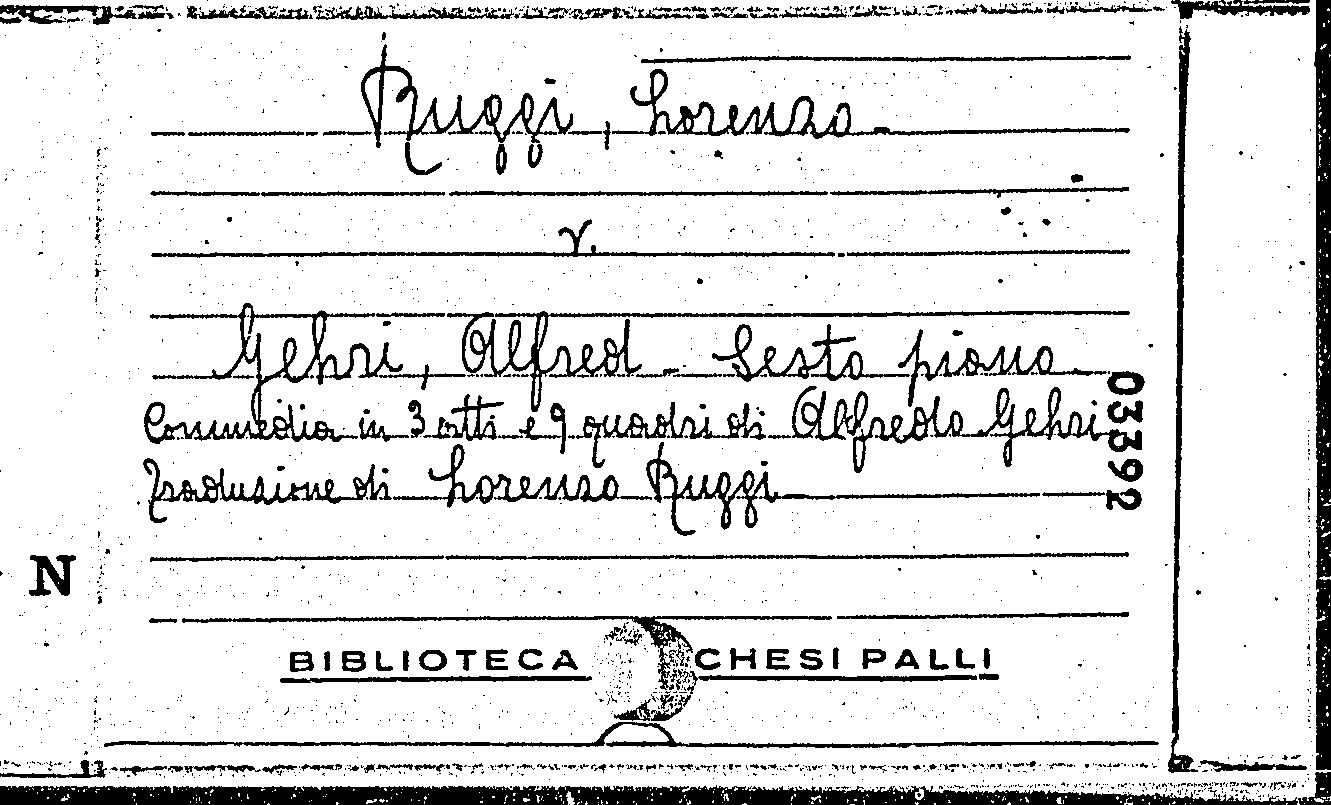 Ruggi, Lorenzo -
v.
Gehri, Alfred - Sesto piano -
Commedia in 3 atti e 9 quadri di Alfredo Gehri
Traduzione di Lorenzo Ruggi
03392
N
BIBLIOTECA CHESI PALLI